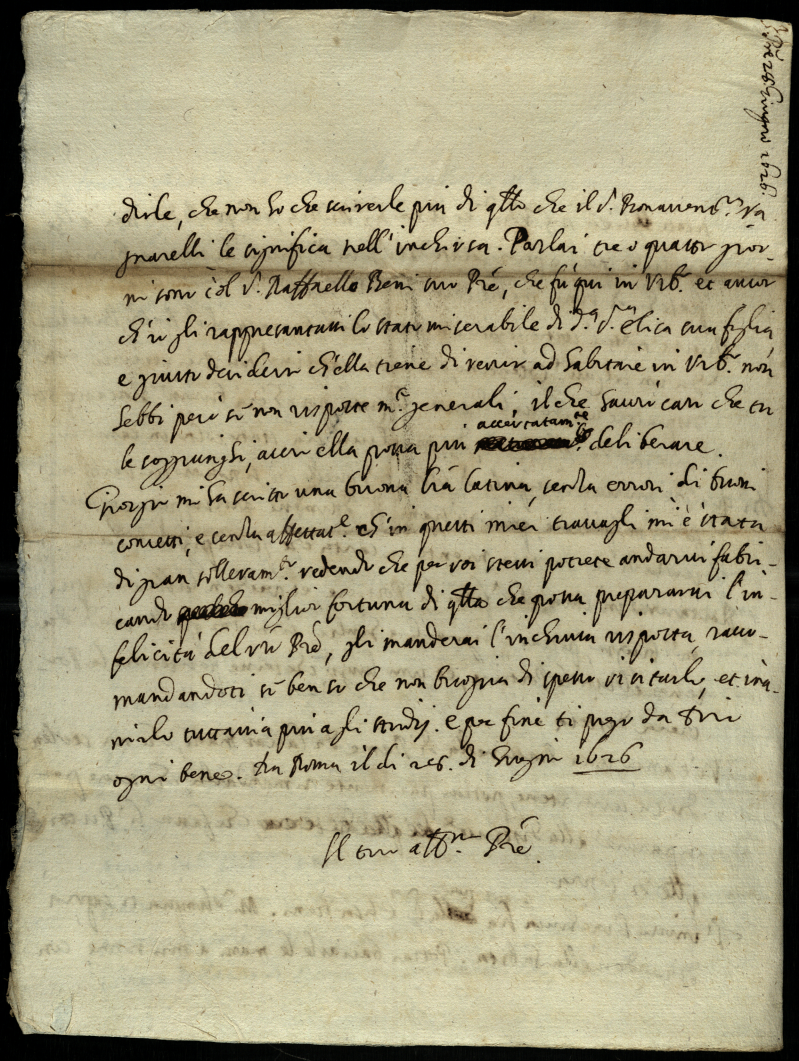 P̃re 28 Giugno 1626.
dirle, che non so che scriverle più di q̃llo che il S. Bonavent.ra Va
gnarelli le significa nell'inchiusa. Parlai tre o quattr gior-
ni sono col S. Raffaello Beni suo P̃re, che fù qui in Urb.o et ancor
ch'io gli rappresentassi lo stato miserabile di d.a S.ra sua figlia
e giusto desiderio ch'ella tiene di venir ad habitare in Urb.o non
hebbi però se non risposte m.to generali; il che havrò caro che tu
le soggiunghi, acciò ella possa più accertatam.te deliberare.
Giorgio mi ha scritto una buona l̃ra latina, senza errori, di buoni
concetti, e senza affettat.e ch'in questi miei travagli mi è stata
di gran sollevam.to vedendo che per voi stessi potrete andarvi fabri-
cando miglior fortuna di q̃lla che possa prepararvi l'in-
felicità del v̄ro P̃re, gli manderai l'inchiusa risposta, racco-
mandandoti se ben so che non bisogna di spesso visitarlo, et ina-
nimirlo tuttavia più agli studij. e per fine ti prego da Dio
ogni bene. Da Roma il di 28. di Giugno 1626
Il tuo aff.mo P̃re